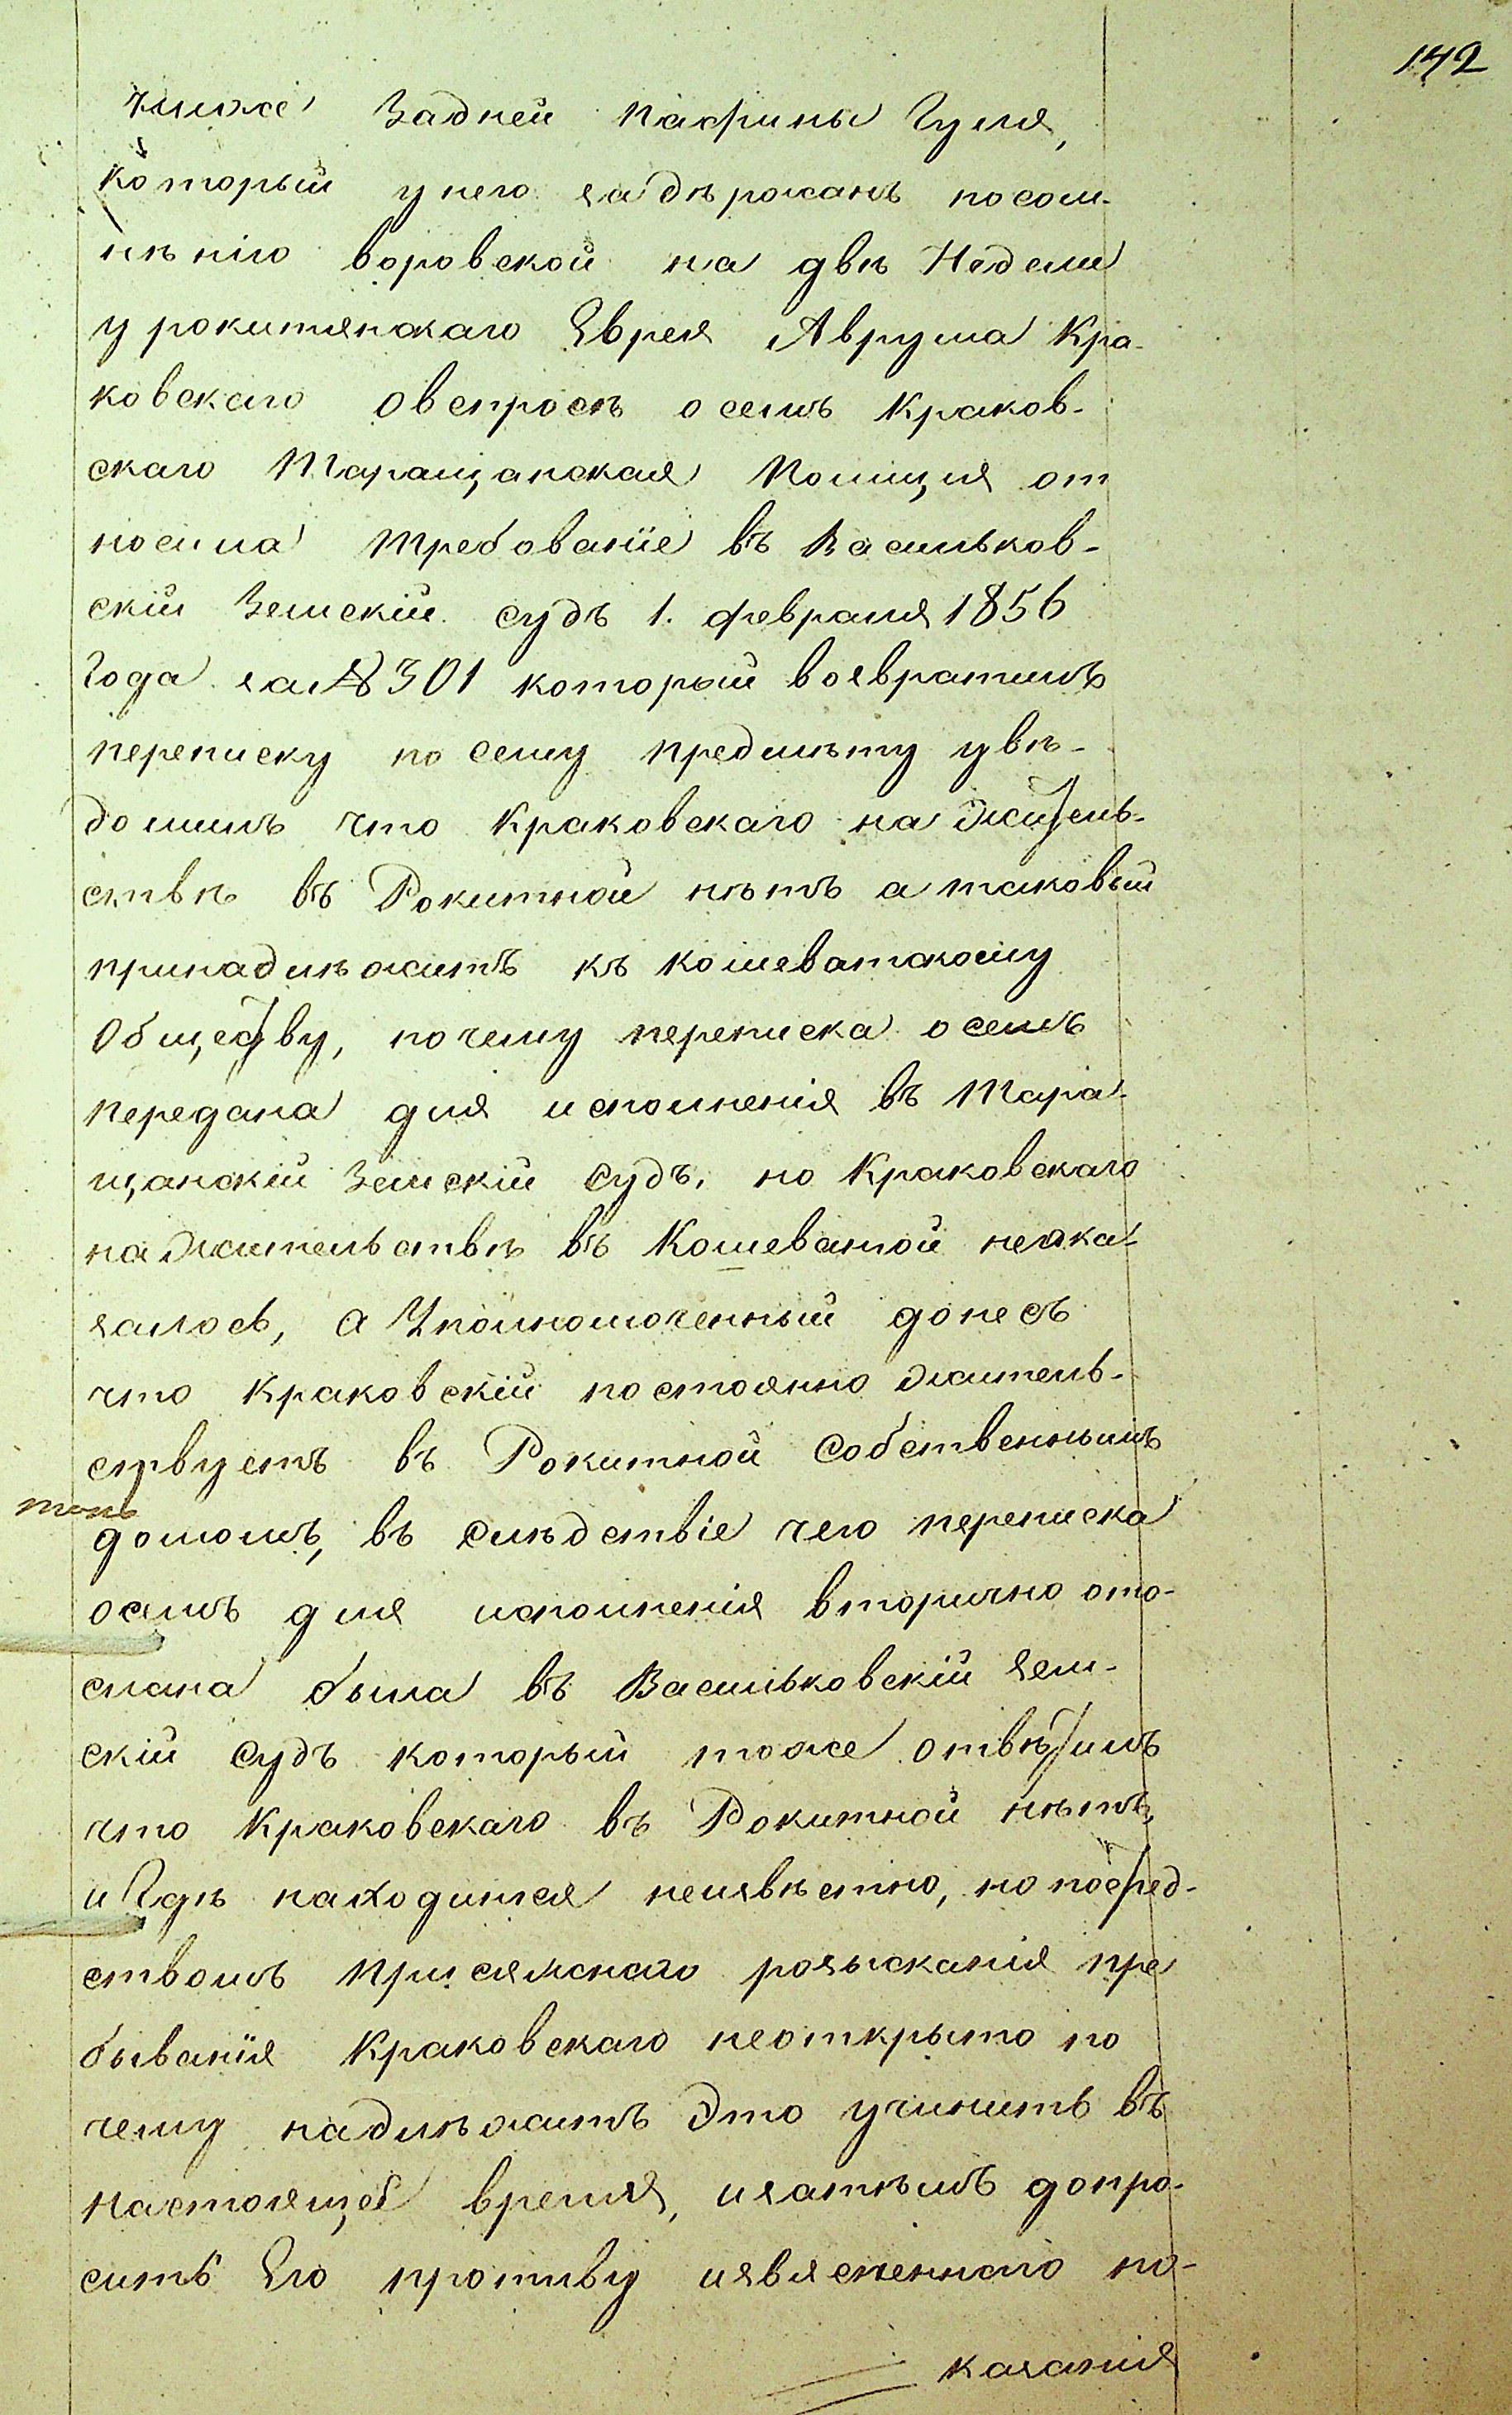 142
чиже задней пахрины Гуля,
который у него задѣржанъ посом-
нѣнію воровской на двѣ Недели
у рокитянскаго Еврея Аврума Кра-
ковскаго овспросѣ осемъ Краков-
скаго Таращанская Полиція от
носила требованіе въ Васильков-
скій Земскій судъ 1. февраля 1856
Года за № 301 который возвратилъ
переписку по сему предмѣту увѣ-
домилъ что Краковскаго на жи[т]ель-
ствѣ въ Рокитной нѣтъ а таковый
принадлѣжитъ къ Кошеватскому
Общес[т]ву, почему переписка осемъ
передана для исполненія въ Тара-
щанскій Земскій судъ, но Краковскаго
на жительствѣ въ Кошеватой неока-
залось, а Уполномоченный донесъ
что Краковскій постоянно житель-
ствуетъ въ Рокитной Собственнымъ
домомъ, въ слѣдствіе чего переписка
осемъ для исполненія вторично ото-
слана была въ Васильковскій Зем-
скій судъ который тоже отвѣ[т]илъ
что Краковскаго въ Рокитной нѣтъ,
и Гдѣ находится неизвѣстно, но посред-
ствомъ присяжнаго розысканія пре
бываніе Краковскаго неоткрыто по
чему надлѣжитъ Это учинить въ
настоящее время, изатѣмъ допро-
сить Его противу изъясненнаго по-
казанія